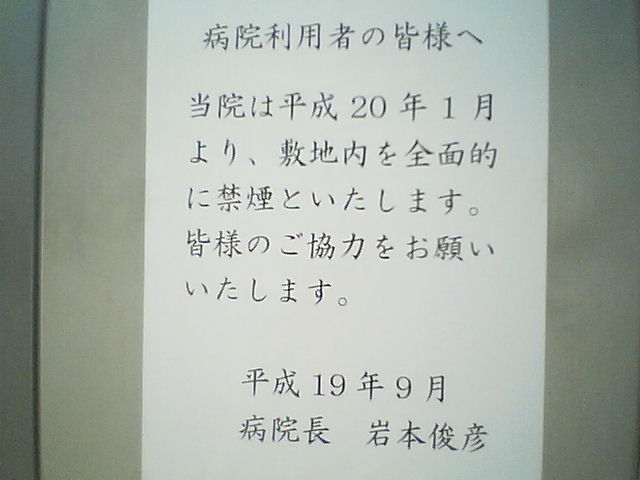 病院利用者の皆様へ
当院は平成20年1月
より、敷地内を全面的
に禁煙といたします。
皆様のご協力をお願い
いたします。
平成19年9月
病院長 岩本俊彦